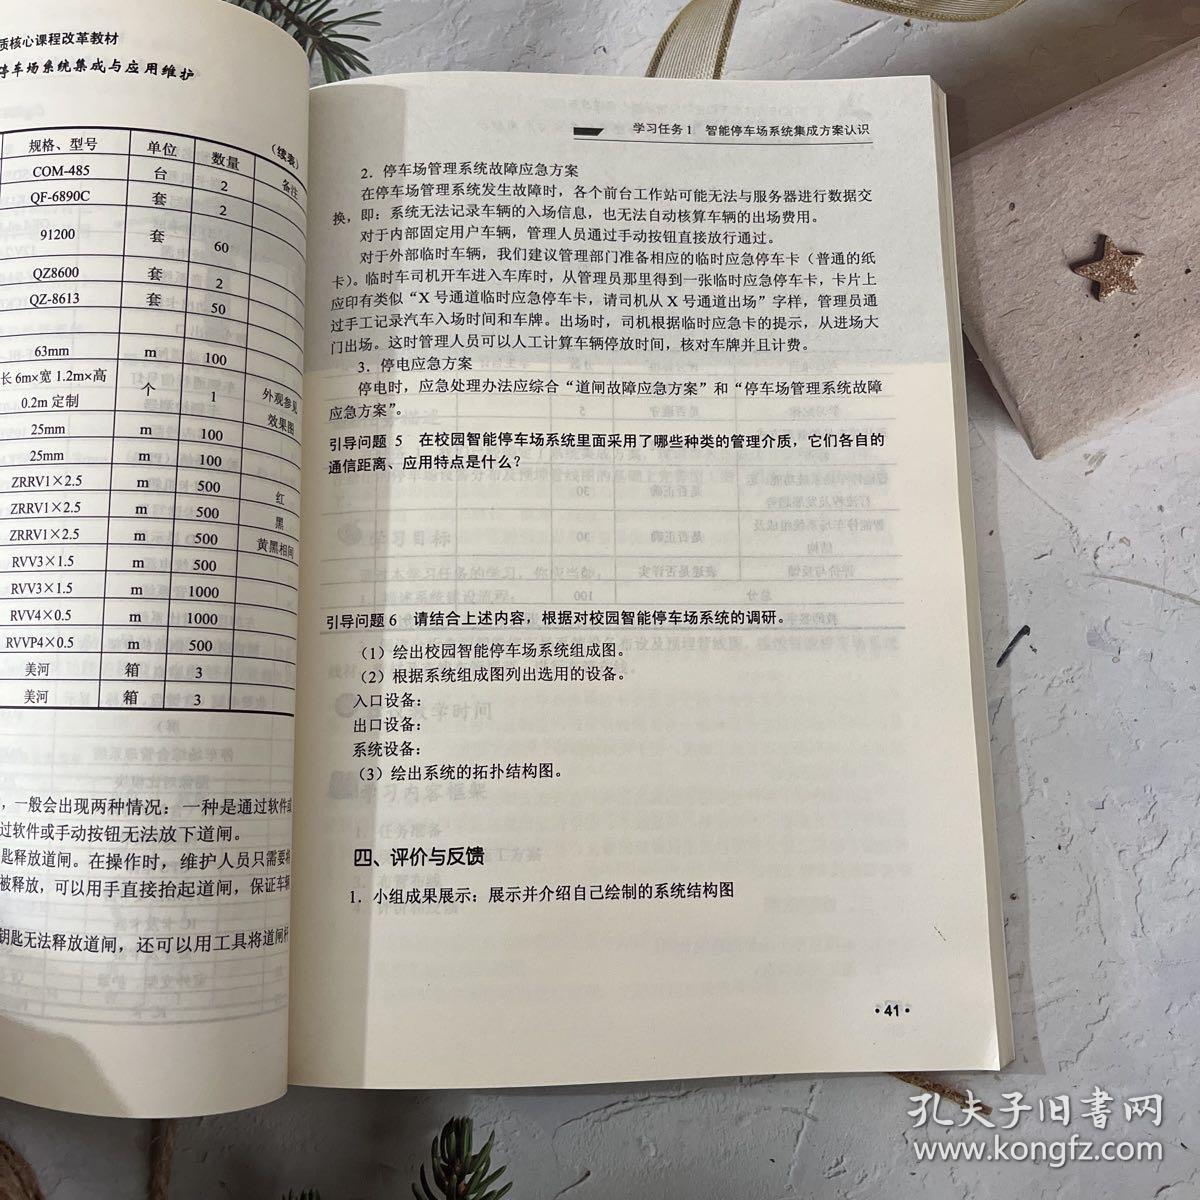 质核心课程改革教材
停车场系统集成与应用维护
（续表）
规格、型号 单位 数量 备注
COM-485 台 2
QF-6890C 套 2
91200 套 60
QZ8600 套 2
QZ-8613 套 50
63mm m 100
长 6m×宽 1.2m×高 0.2m 定制 个 1 外观参见效果图
25mm m 100
25mm m 100
ZRRV1×2.5 m 500 红
ZRRV1×2.5 m 500 黑
ZRRV1×2.5 m 500 黄黑相间
RVV3×1.5 m 500
RVV3×1.5 m 1000
RVV4×0.5 m 1000
RVVP4×0.5 m 500
美河 箱 3
美河 箱 3
，一般会出现两种情况：一种是通过软件或
过软件或手动按钮无法放下道闸。
匙释放道闸。在操作时，维护人员只需要将
被释放，可以用手直接抬起道闸，保证车辆
钥匙无法释放道闸，还可以用工具将道闸杆
学习任务 1 智能停车场系统集成方案认识
2．停车场管理系统故障应急方案
在停车场管理系统发生故障时，各个前台工作站可能无法与服务器进行数据交
换，即：系统无法记录车辆的入场信息，也无法自动核算车辆的出场费用。
对于内部固定用户车辆，管理人员通过手动按钮直接放行通过。
对于外部临时车辆，我们建议管理部门准备相应的临时应急停车卡（普通的纸
卡）。临时车司机开车进入车库时，从管理员那里得到一张临时应急停车卡，卡片上
应印有类似“X 号通道临时应急停车卡，请司机从 X 号通道出场”字样，管理员通
过手工记录汽车入场时间和车牌。出场时，司机根据临时应急卡的提示，从进场大
门出场。这时管理人员可以人工计算车辆停放时间，核对车牌并且计费。
3．停电应急方案
停电时，应急处理办法应综合“道闸故障应急方案”和“停车场管理系统故障
应急方案”。
引导问题 5 在校园智能停车场系统里面采用了哪些种类的管理介质，它们各自的
通信距离、应用特点是什么？
引导问题 6 请结合上述内容，根据对校园智能停车场系统的调研。
（1）绘出校园智能停车场系统组成图。
（2）根据系统组成图列出选用的设备。
入口设备：
出口设备：
系统设备：
（3）绘出系统的拓扑结构图。
四、评价与反馈
1．小组成果展示：展示并介绍自己绘制的系统结构图
·41·
孔夫子旧书网
www.kongfz.com